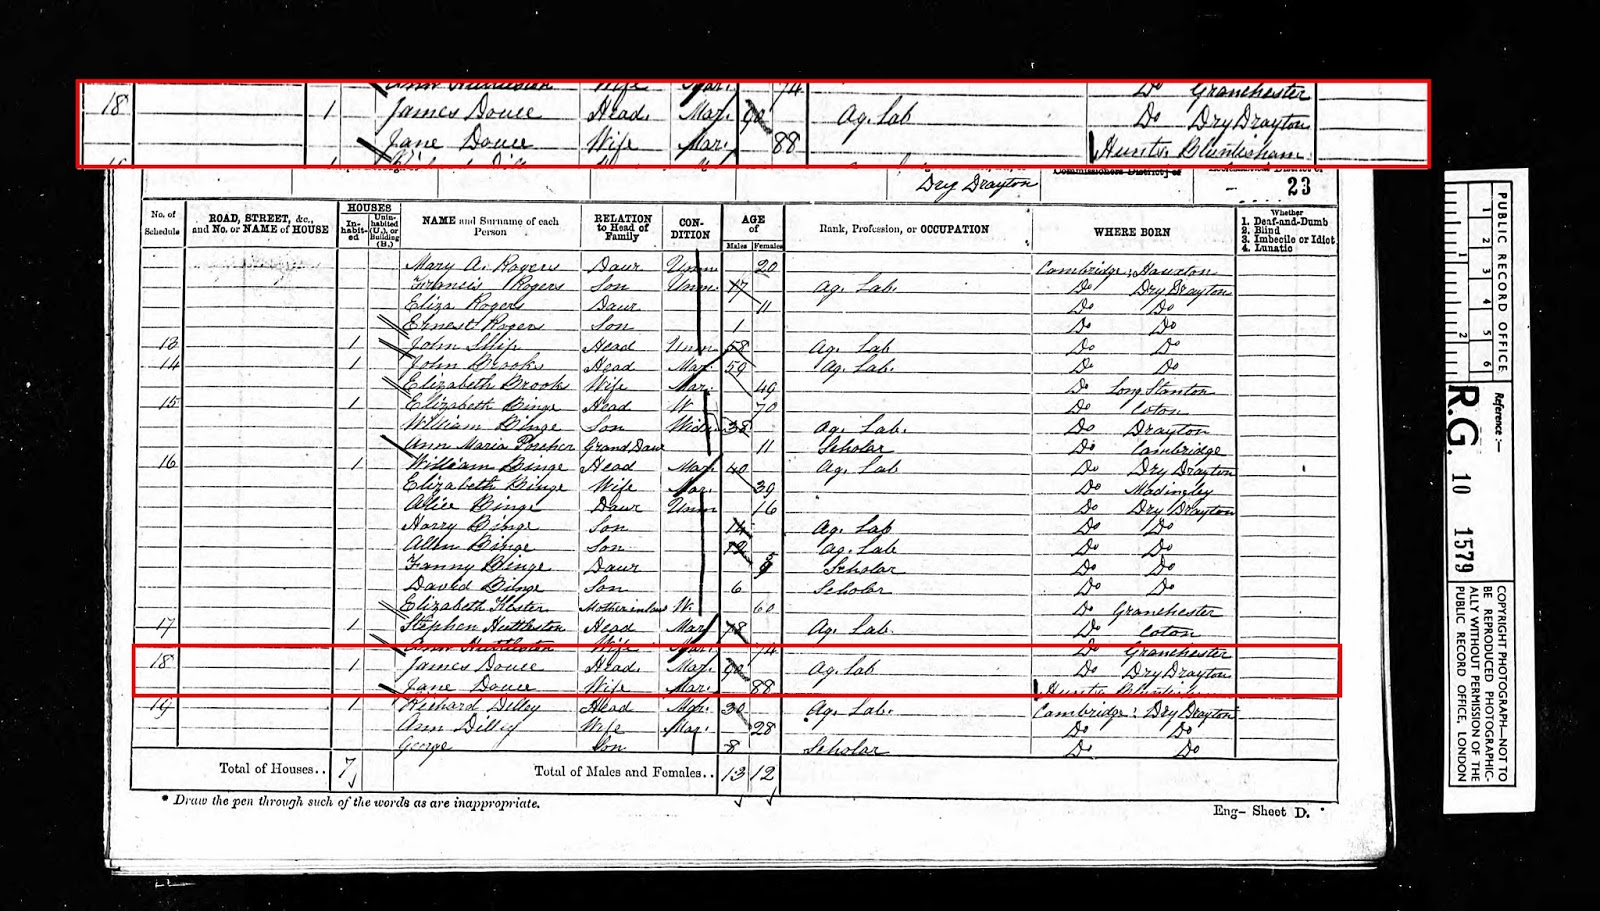 Ann Huttleston Wife Mar. 74 Do Granchester
18 1 James Douce Head. Mar. 90 Ag. Lab Do Dry Drayton
Jane Douce Wife Mar. 88 Hunts. Bluntisham
Dry Drayton
23
No. of Schedule
ROAD, STREET, &c., and No. or NAME of HOUSE
HOUSES
In-habit-ed
Unin-habited (U.), or Building (B.)
NAME and Surname of each Person
RELATION to Head of Family
CON-DITION
AGE of
Males Females
Rank, Profession, or OCCUPATION
WHERE BORN
Whether
1. Deaf-and-Dumb
2. Blind
3. Imbecile or Idiot
4. Lunatic
Mary A. Rogers Daur Unm 20 Cambridge; Hauxton
Francis Rogers Son Unm. 17 Ag. Lab. Do Dry Drayton
Eliza Rogers Daur 11 Do Do
Ernest Rogers Son 1 Do Do
13 1 John Ship Head Unm 58 Ag. Lab Do Do
14 1 John Brooks Head Mar. 59 Ag. Lab. Do Do
Elizabeth Brooks Wife Mar. 49 Do Long Stanton
15 1 Elizabeth Binge Head W. 70 Do Coton
William Binge Son 38 Ag. Lab. Do Drayton
Ann Maria Porcher Grand Daur 11 Scholar Do Cambridge
16 1 William Binge Head Mar. 40 Ag. Lab Do Dry Drayton
Elizabeth Binge Wife Mar. 39 Do Madingley
Alice Binge Daur Unm 16 Do Dry Drayton
Harry Binge Son 14 Ag. Lab Do Do
Allen Binge Son 12 Ag. Lab Do Do
Fanny Binge Daur Scholar Do Do
David Binge Son 6 Scholar Do Do
Elizabeth Kester Mother in law W. 60 Do Granchester
17 1 Stephen Huttleston Head Mar. 78 Ag. Lab. Do Coton
Ann Huttleston Wife Mar. 74 Do Granchester
18 1 James Douce Head. Mar. 90 Ag. Lab Do Dry Drayton
Jane Douce Wife Mar. 88 Hunts. Bluntisham
19 1 Richard Dilley Head Mar. 30 Ag. Lab. Cambridge; Dry Drayton
Ann Dilley Wife Mar. 28 Do Do
George Son 8 Scholar Do Do
Total of Houses.. 7
Total of Males and Females.. 13 12
* Draw the pen through such of the words as are inappropriate.
Eng- Sheet D.
PUBLIC RECORD OFFICE
1 2 3 4 5 6
1 2
Reference:-
R.G. 10 1579
COPYRIGHT PHOTOGRAPH-NOT TO
BE REPRODUCED PHOTOGRAPHIC-
ALLY WITHOUT PERMISSION OF THE
PUBLIC RECORD OFFICE, LONDON